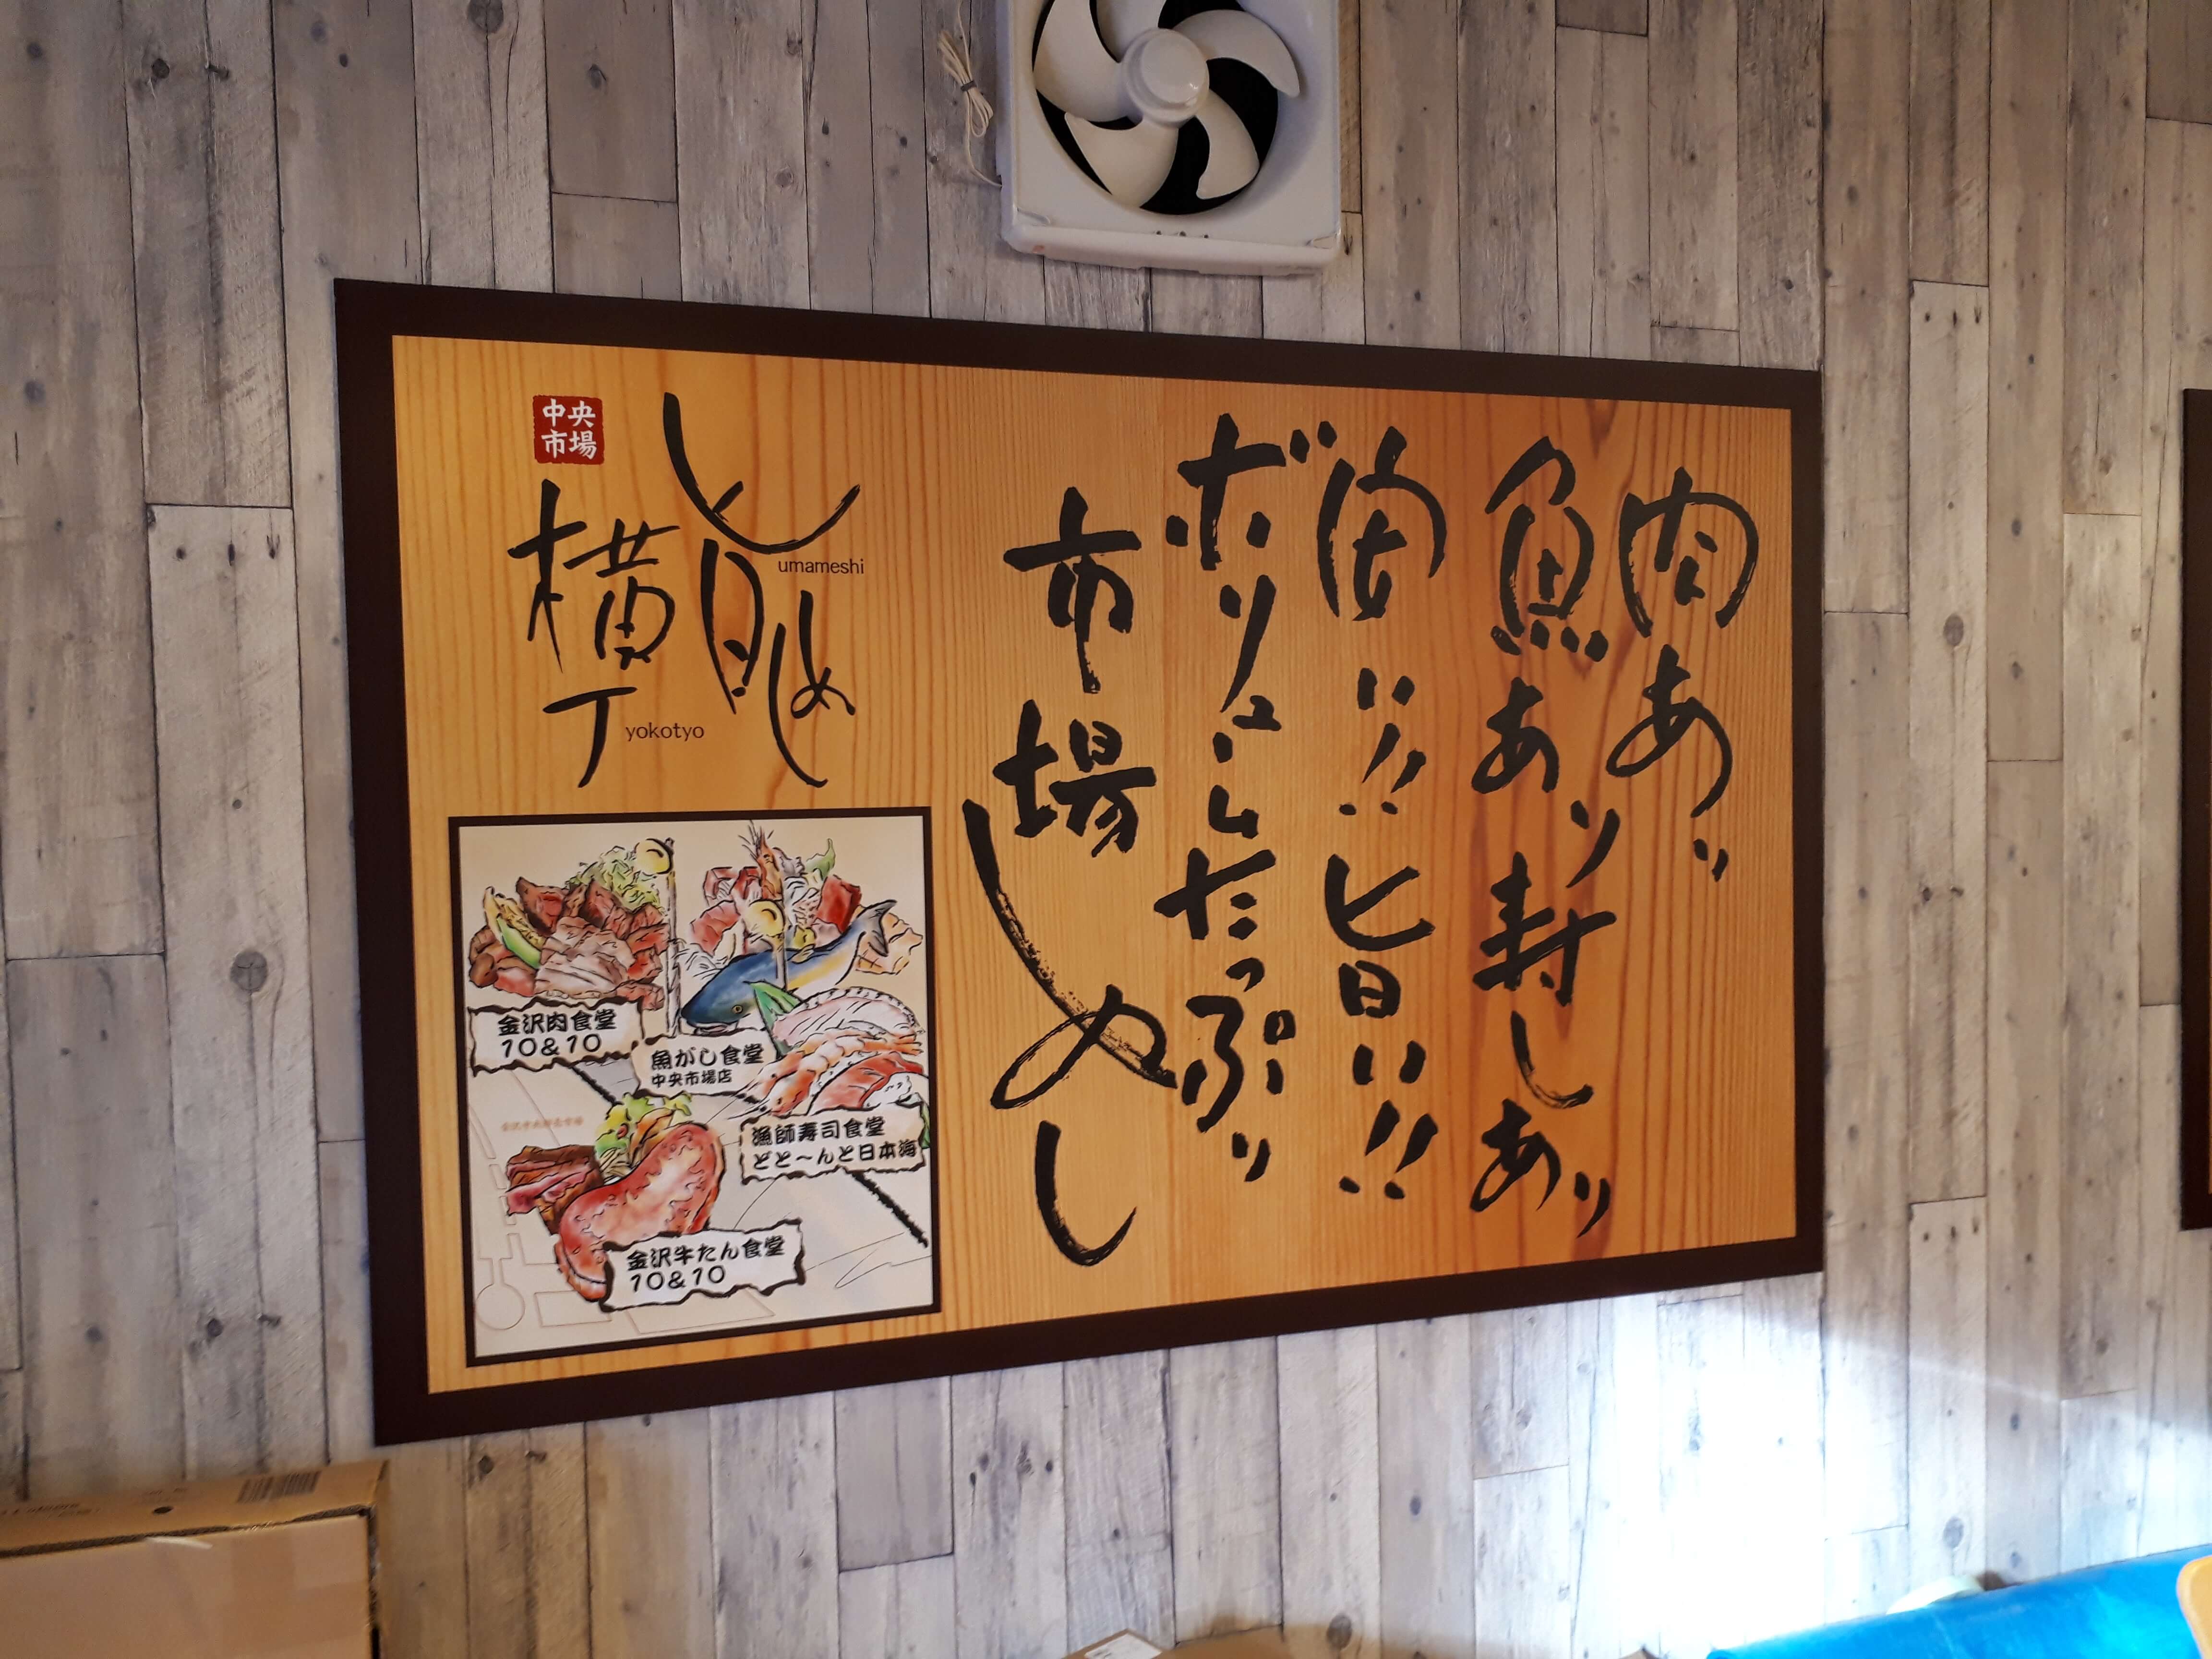 肉あり
魚あり寿しあり
安い!!旨い!!
ボリュームたっぷり
市場めし
中央
市場
旨めし
umameshi
横丁
yokotyo
金沢肉食堂
10&10
魚がし食堂
中央市場店
漁師寿司食堂
どと〜んと日本海
金沢牛たん食堂
10&10